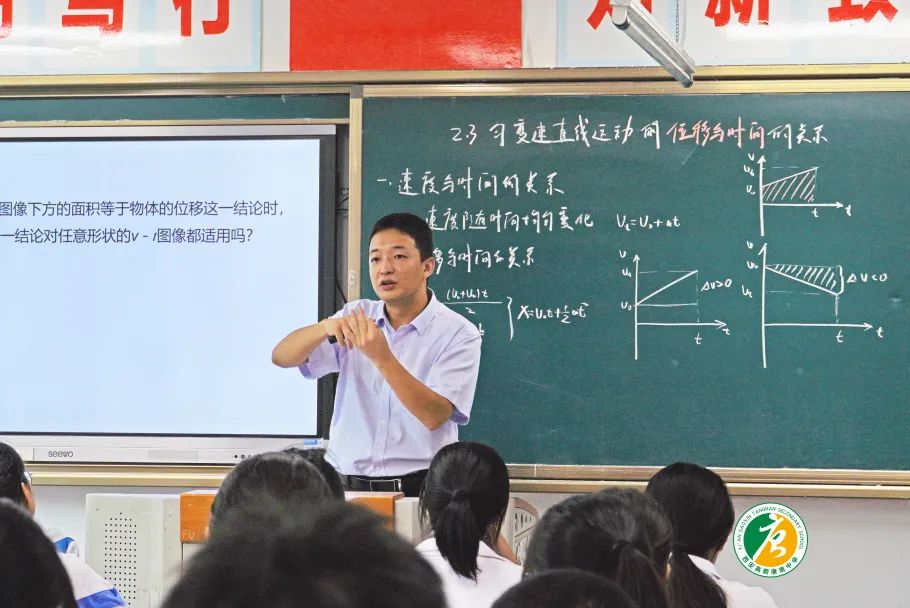 行
新 致
图像下方的面积等于物体的位移这一结论时，
一结论对任意形状的v - t图像都适用吗？
seewo
2.3 匀变速直线运动的位移与时间的关系
一.速度与时间的关系
速度随时间均匀变化 Vt=V0+at
移与时间的关系
(V0+Vt)t
2
X=V0t+½at²
V
t
t
V
V0
Δv>0
t
t
V
V0
Vt
Δv<0
t
t
XI'AN GAOXIN TANGNAN SECONDARY SCHOOL
西安高新唐南中学